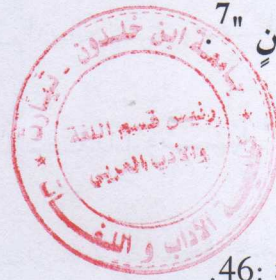 نٍ "7
جامعة ابن خلدون - تيارت
رئيس قسم اللغة
والأدب العربي
الآداب و اللغات
.46: